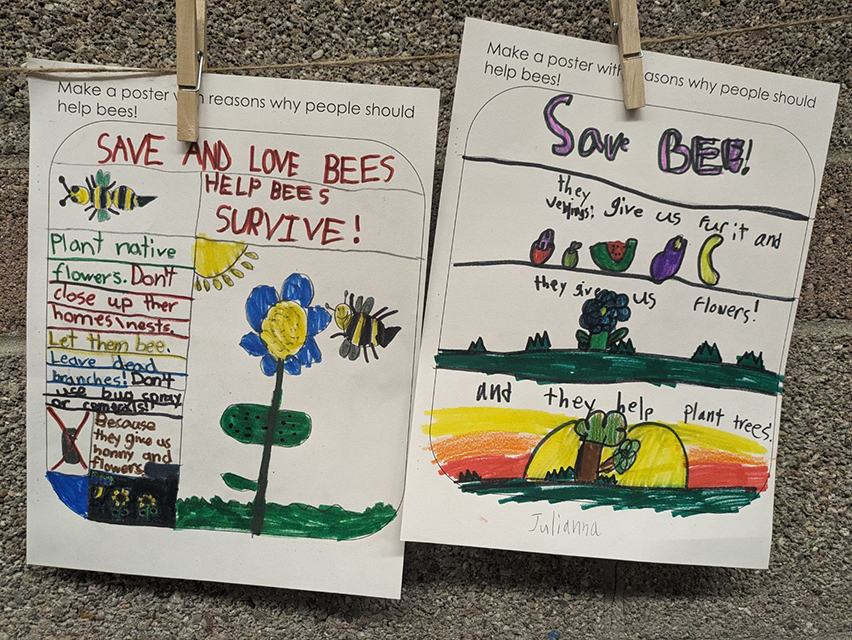 Make a poster with reasons why people should
help bees!
SAVE AND LOVE BEES
HELP BEES
SURVIVE!
Plant native
flowers. Don't
close up ther
homes\nests.
Let them bee.
Leave dead
branches! Don't
use bug spray
or comecals!
Because
they give us
honny and
flowers.
Make a poster with reasons why people should
help bees!
Save BEE!
they give us furit and
vegings!
they give us flowers!
and they help plant trees.
Julianna